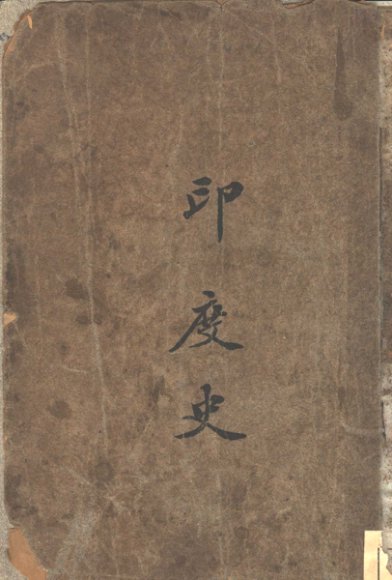 印度史